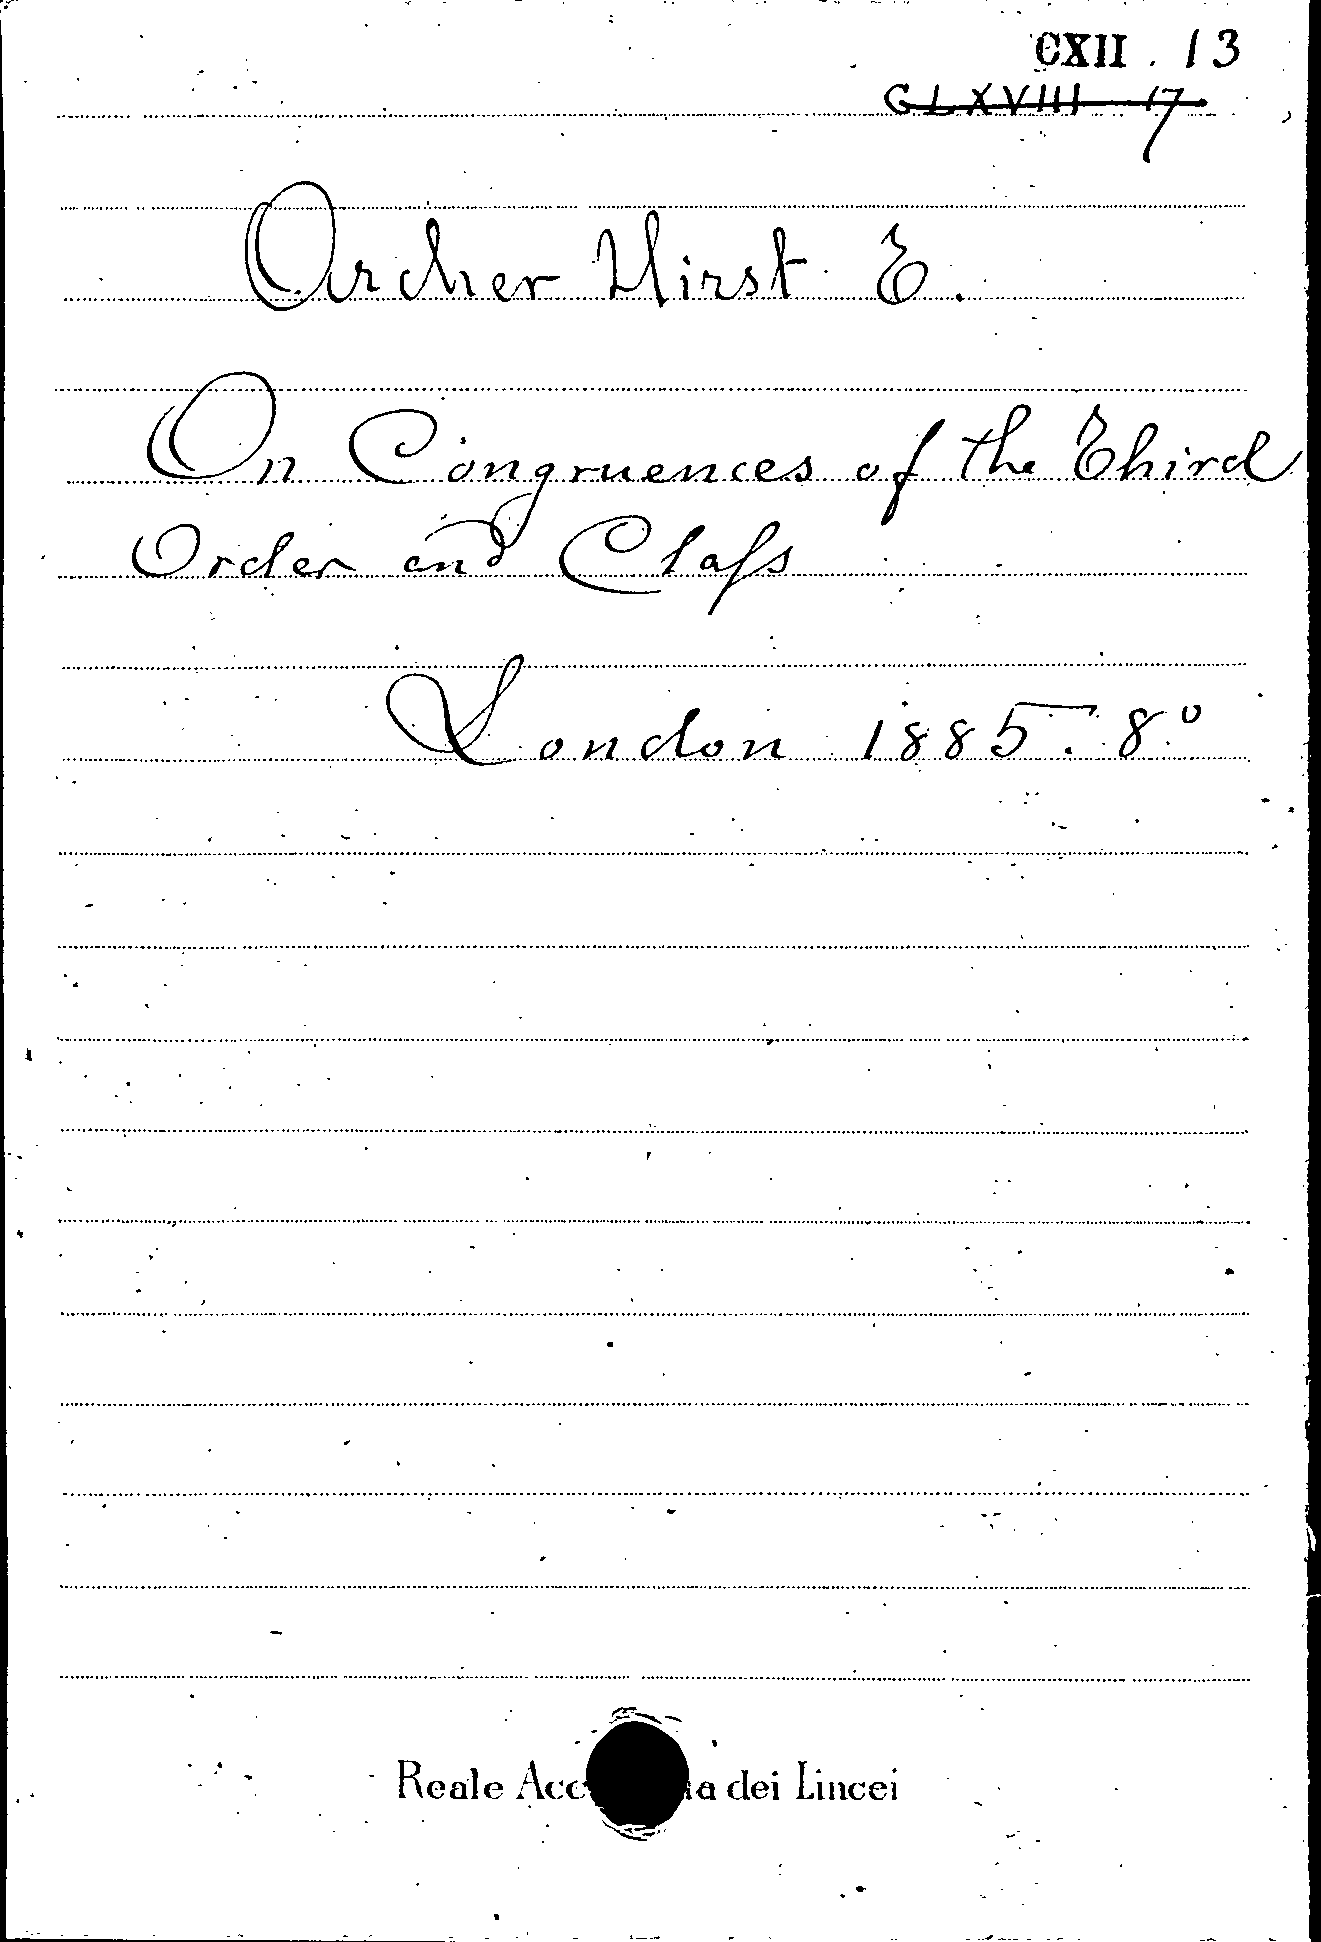 CXII . 13
CLXVIII 17
Archer Hirst T.
On Congruences of the Third
Order and Claſs
London 1885. 8º
Reale Acc ia dei Lincei